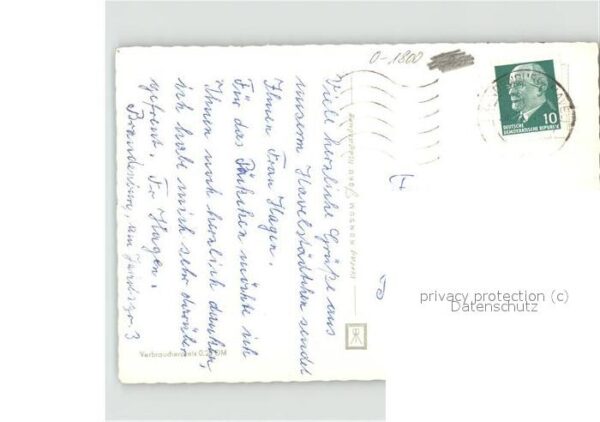 0-1800
DEUTSCHE
DEMOKRATISCHE REPUBLIK
10
Viele herzliche Grüße aus
unserm Havelstädtchen sendet
Ihnen Frau Hagen.
Für das Päckchen möchte ich
Ihnen noch herzlich danken,
ich habe mich sehr darüber
gefreut. Fr Hagen.
Brandenburg, am 3
Verbraucherpreis 0, DM
privacy protection (c)
Datenschutz